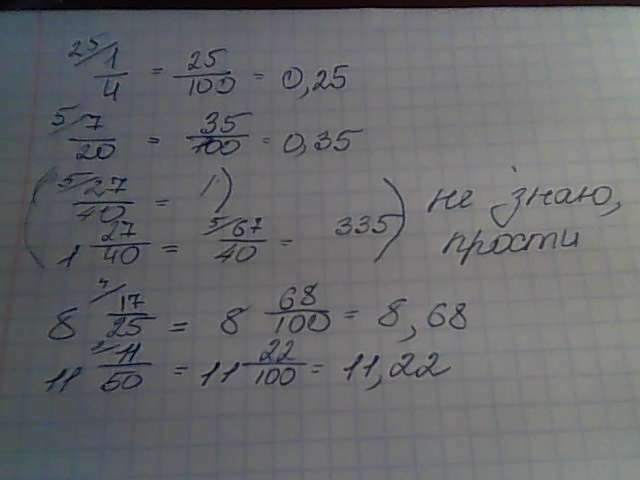 25/ 1/4 = 25/100 = 0,25
5/ 7/20 = 35/100 = 0,35
( 5/ 27/40 = 1 )
1 27/40 = 5/ 67/40 = 335 ) не знаю,
прости
8 4/ 17/25 = 8 68/100 = 8,68
11 2/ 11/50 = 11 22/100 = 11,22